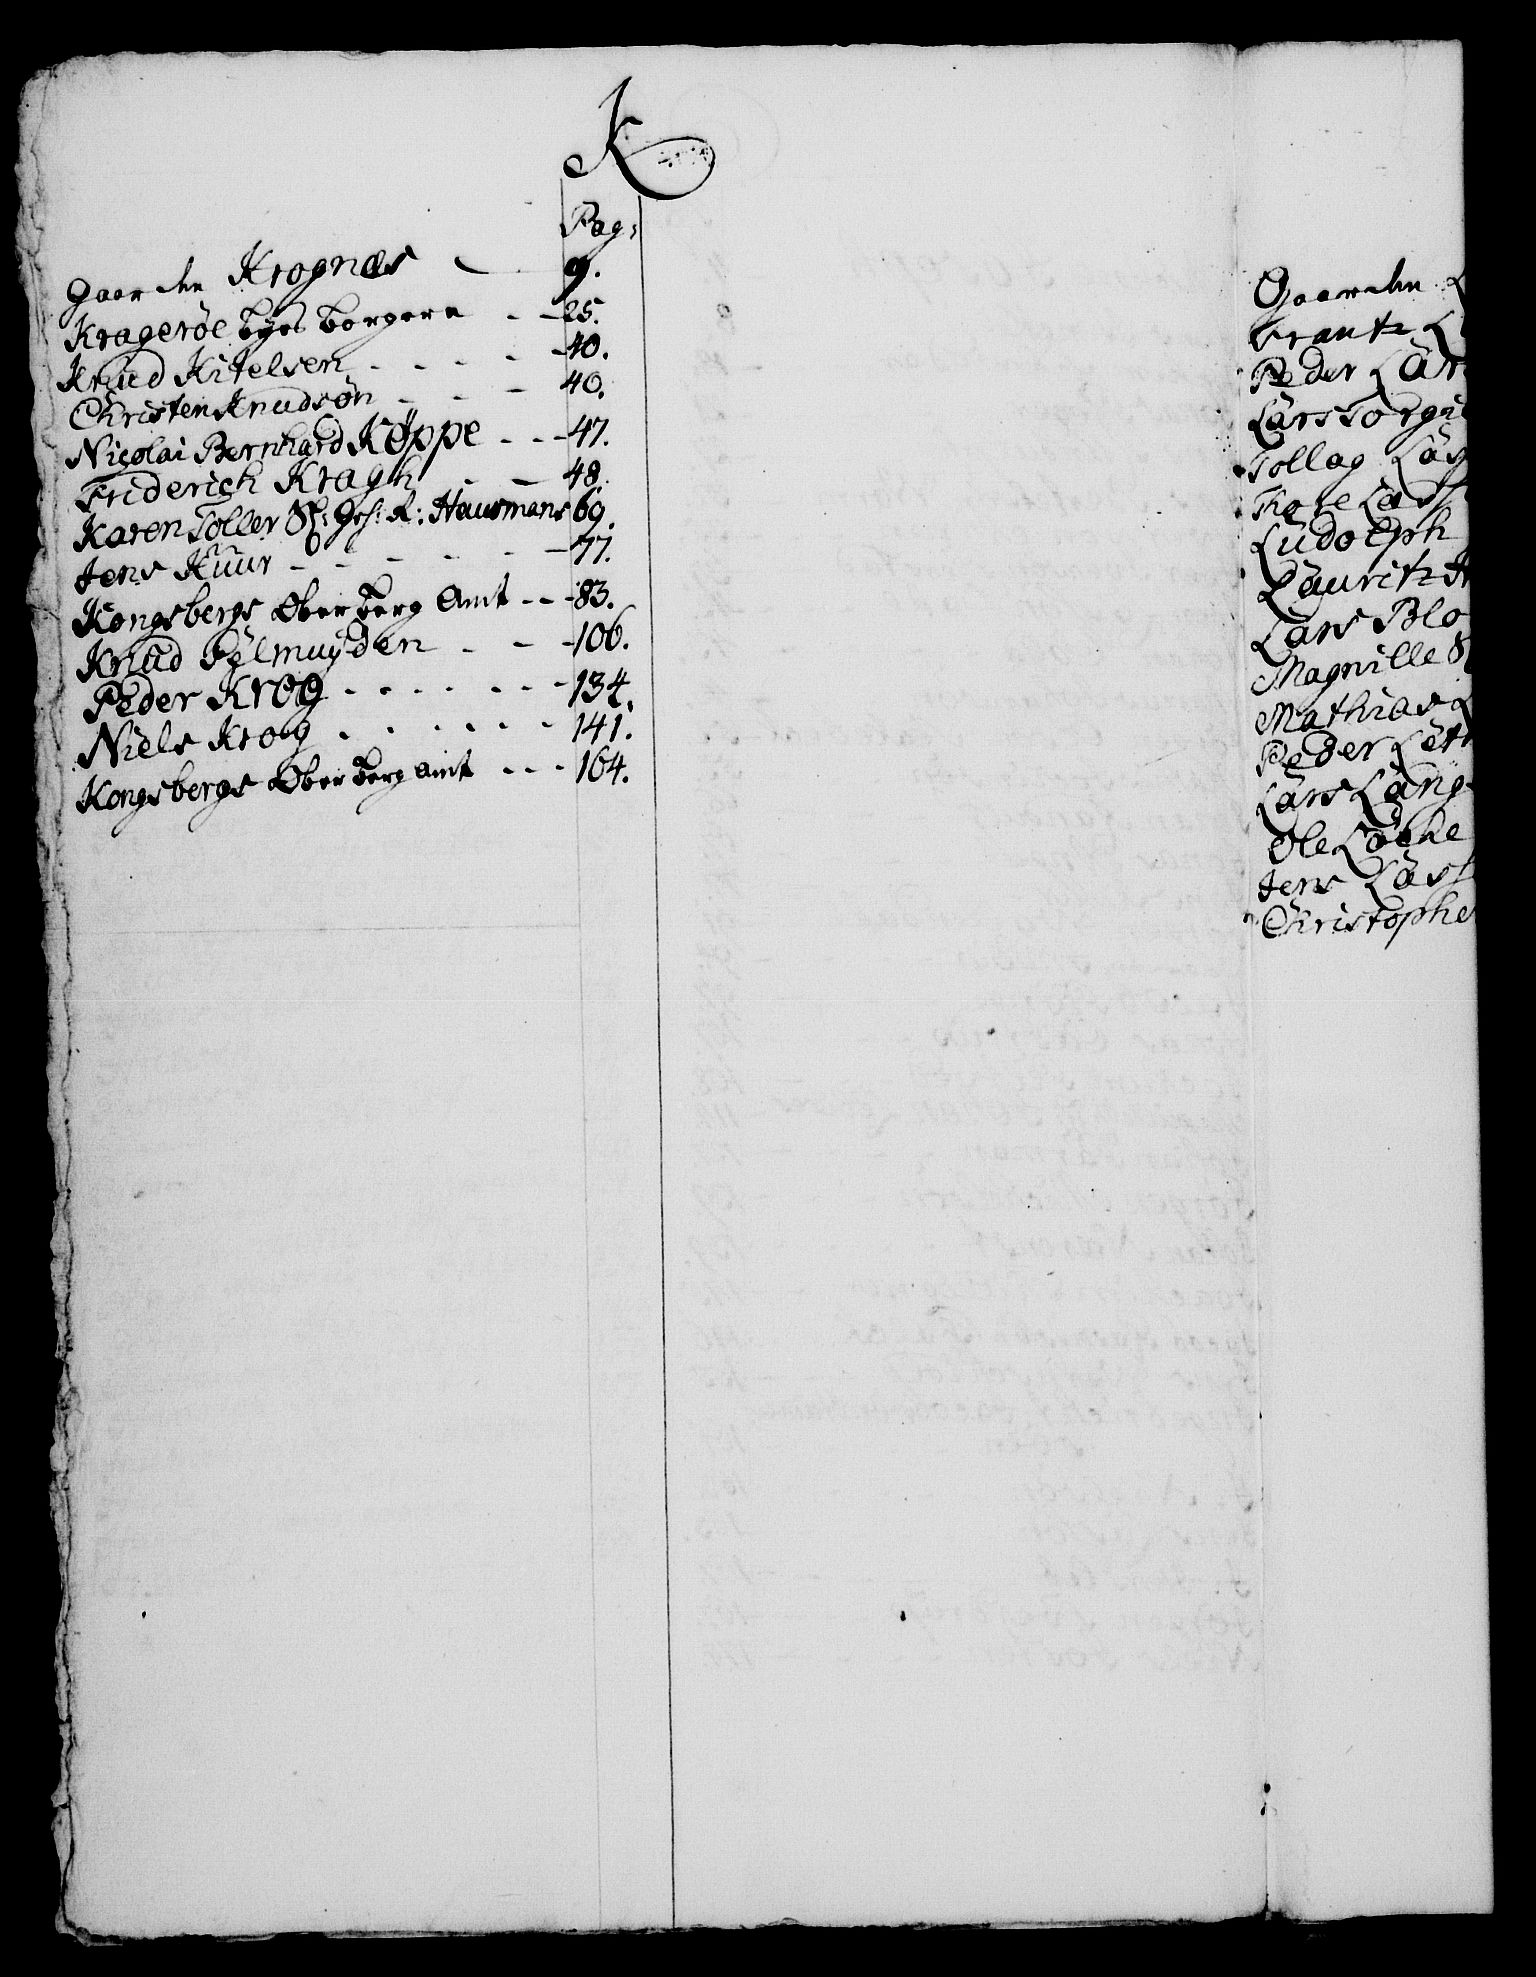 K
Pag:
Gaarden Krognæs 9.
Krageröe byes borgere - - 25.
Knud Kitelsen - - - - - 40.
Christen Knudsön - - - - 40.
Nicolai Bernhard Köppe - - - 47.
Friderich Kragh - - - 48.
Karen Toller Sl: Geh: R: Hausmans 69.
Jens Kuur - - - - - - 77.
Kongsbergs Ober Berg Amt - - - 83.
Knud Pylmuyden - - - 106.
Peder Krog - - - - - - - 134.
Niels Krog - - - - - - 141.
Kongsbergs Ober Berg Amt - - - 164.
Gaarden L
Frantz L
Peder Lar
Lars Torgi
Tollag Las
Tore Lass
Ludolph
Lauritz H
Lars Blo
Magnille S
Mathias L
Peder Let
Lars Lang
Ole Löcke
Jens Lass
Christophe